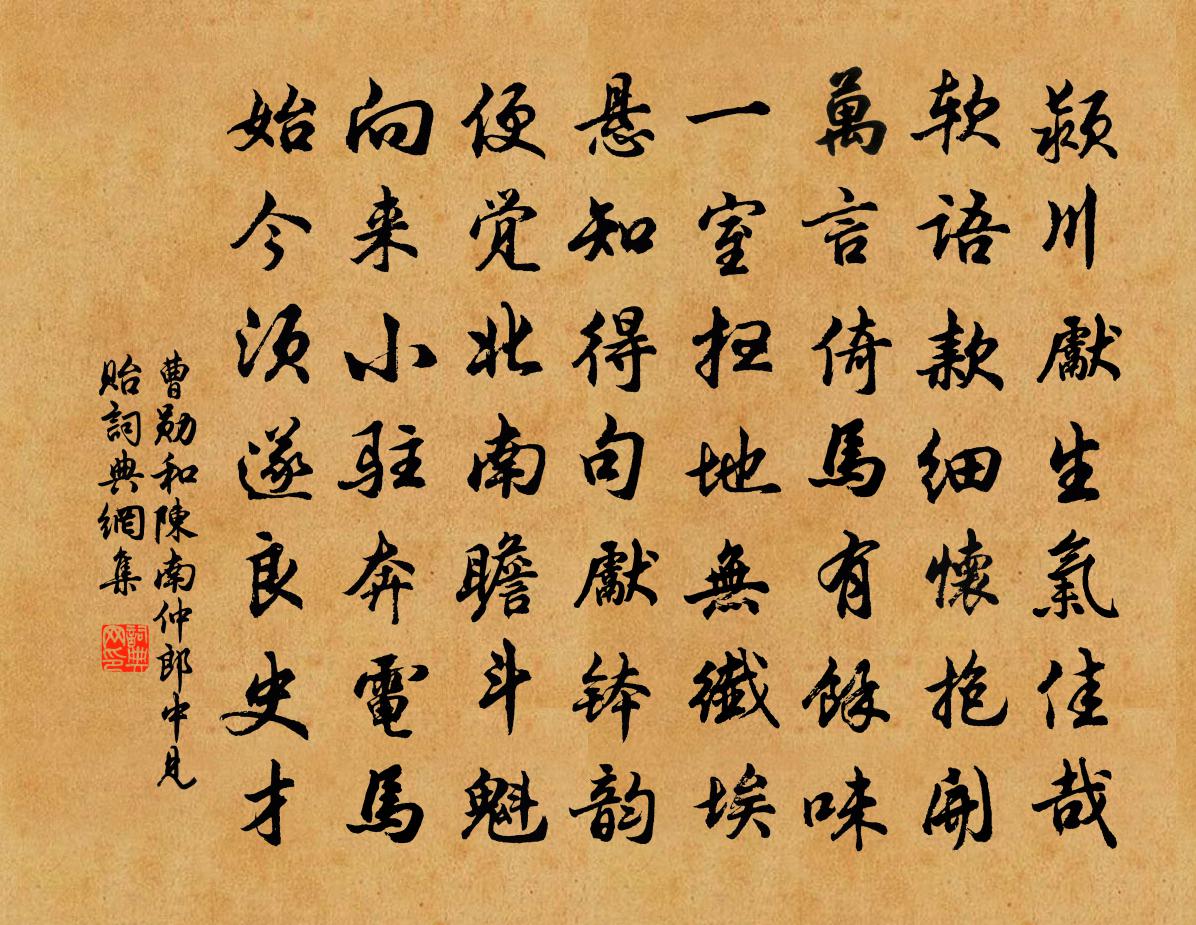 潁川獻生氣佳哉
软語款細懷抱開
萬言倚馬有餘味
一室扫地無纖埃
悬知得句獻钵韵
便觉北南瞻斗魁
向来小驻奔電馬
始今须遂良史才
曹勋和陳南仲郎中見
貽詞典網集
詞典网印